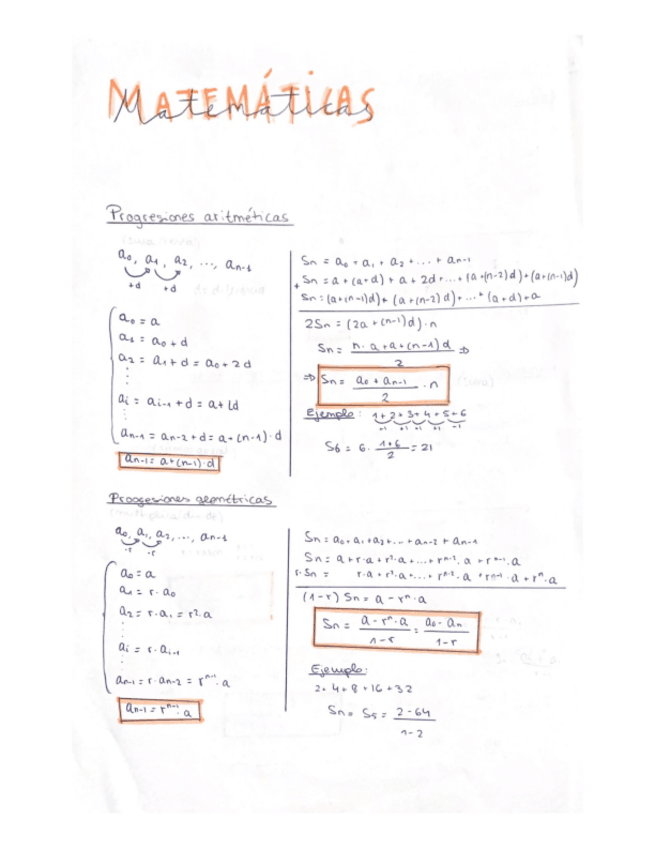 MATEMÁTICAS
Matemáticas
Progresiones aritméticas
a₀, a₁, a₂, ..., aₙ₋₁
+d +d
a₀ = a
a₁ = a₀ + d
a₂ = a₁ + d = a₀ + 2d
⋮
aᵢ = aᵢ₋₁ + d = a + id
aₙ₋₁ = aₙ₋₂ + d = a + (n-1)·d
aₙ₋₁ = a + (n-1)·d
Sn = a₀ + a₁ + a₂ + ... + aₙ₋₁
+ Sn = a + (a+d) + a + 2d + ... + (a+(n-2)d) + (a+(n-1)d)
Sn = (a+(n-1)d) + (a+(n-2)d) + ... + (a+d) + a
2Sn = (2a + (n-1)d)·n
Sn = n·a+a+(n-1)d / 2 ⇒
⇒ Sn = a₀ + aₙ₋₁ / 2 · n
Ejemplo: 1+2+3+4+5+6
+1 +1 +1 +1 +1
S6 = 6 · 1+6 / 2 = 21
Progresiones geométricas
a₀, a₁, a₂, ..., aₙ₋₁
·r ·r
a₀ = a
a₁ = r·a₀
a₂ = r·a₁ = r²·a
⋮
aᵢ = r·aᵢ₋₁
aₙ₋₁ = r·aₙ₋₂ = rⁿ⁻¹·a
aₙ₋₁ = rⁿ⁻¹·a
Sn = a₀ + a₁ + a₂ + ... + aₙ₋₂ + aₙ₋₁
Sn = a + r·a + r²·a + ... + rⁿ⁻²·a + rⁿ⁻¹·a
r·Sn = r·a + r²·a + ... + rⁿ⁻²·a + rⁿ⁻¹·a + rⁿ·a
(1-r) Sn = a - rⁿ·a
Sn = a - rⁿ·a / 1-r = a₀ - aₙ / 1-r
Ejemplo:
2+4+8+16+32
Sn = S5 = 2-64 / 1-2